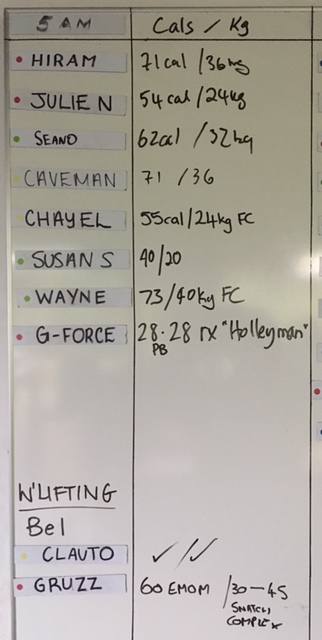 5 AM Cals / Kg
HIRAM 71cal /36kg
JULIE N 54cal /24kg
SEANO 62cal /32kg
CAVEMAN 71 /36
CHAYEL 55cal/24kg FC
SUSAN S 40/20
WAYNE 73/40kg FC
G-FORCE 28.28 rx "Holleyman"
PB
W'LIFTING
Bel
CLAUTO ✓ /✓
GRUZZ 60 EMOM /30-45
SNATCH
COMPLEX